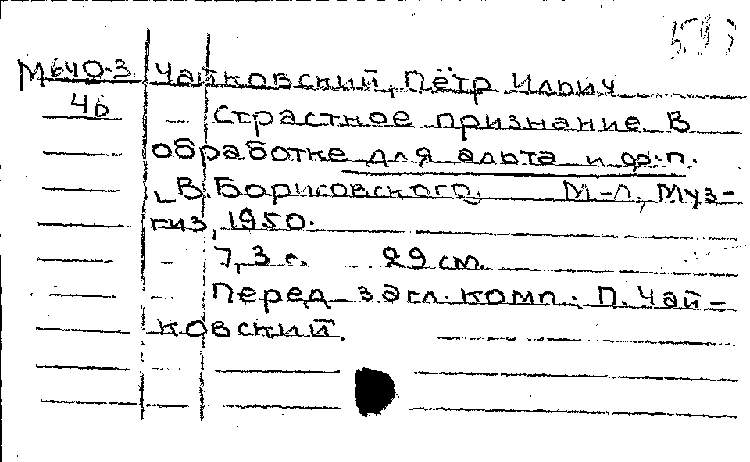 М640-3 Чайковский, Пётр Ильич
Ч6 – Страстное признание В
обработке для альта и ф.-п.
В. Борисовского. М.-Л., Муз-
гиз, 1950.
7, 3 с. 29 см.
Перед загл. комп.: П. Чай-
ковский.